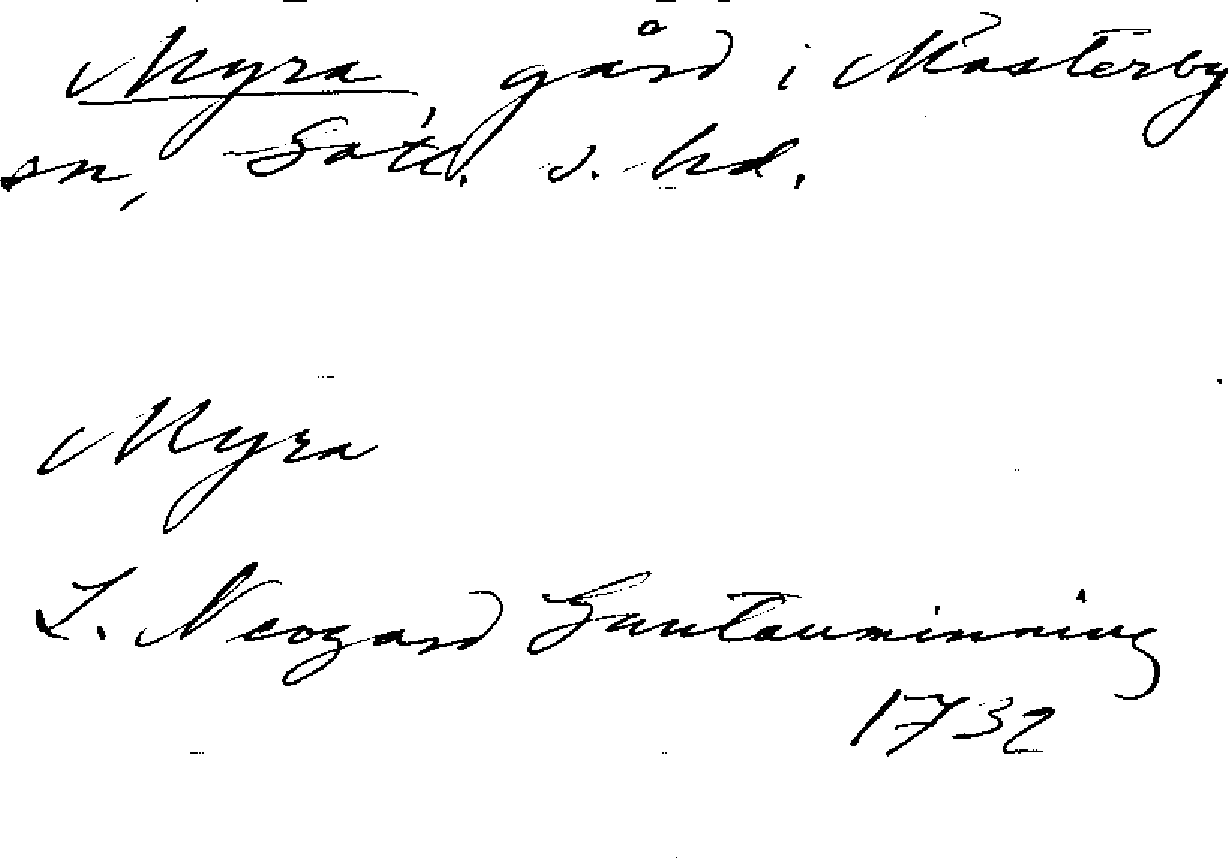 Myra, gård i Mästerby
sn, Gotl. s. hd.
Myra
L. Neogard Gautauminning
1732